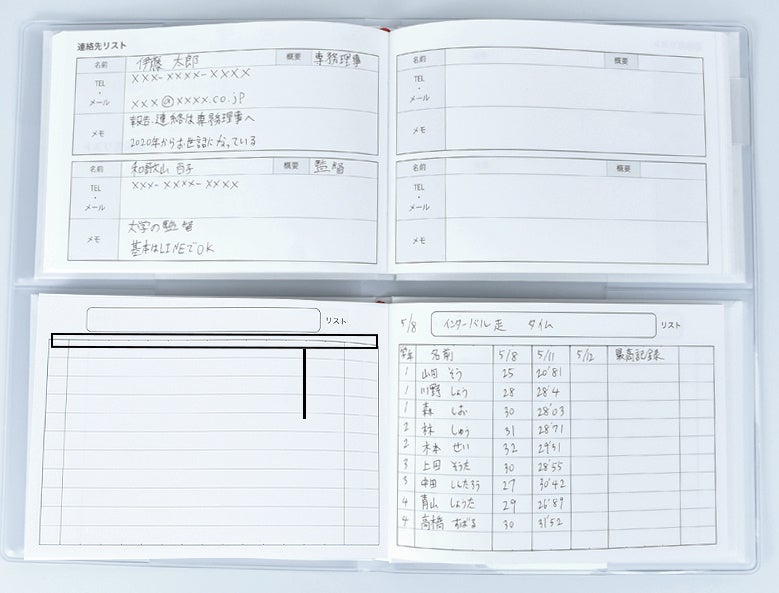 連絡先リスト
名前 伊藤 太郎 概要 専務理事
TEL ・ メール xxx-xxxx-xxxx
xxx@xxxx.co.jp
メモ 報告・連絡は専務理事へ
2020年からお世話になっている
名前 和歌山 百子 概要 監督
TEL ・ メール xxx-xxxx-xxxx
メモ 大学の監督
基本はLINEでOK
名前 概要
TEL
・
メール
メモ
名前 概要
TEL
・
メール
メモ
リスト
5/8 インターバル走 タイム リスト
学年 名前 5/8 5/11 5/12 最高記録
1 山田 そう 25 20'81
1 川野 しょう 28 28'4
1 森 しお 30 28'03
2 林 しゅう 31 28'71
2 木本 せい 32 29'31
3 上田 そうた 30 28'55
3 中田 しんたろう 27 30'42
4 青山 しょうた 29 26'89
4 高橋 すばる 30 31'52